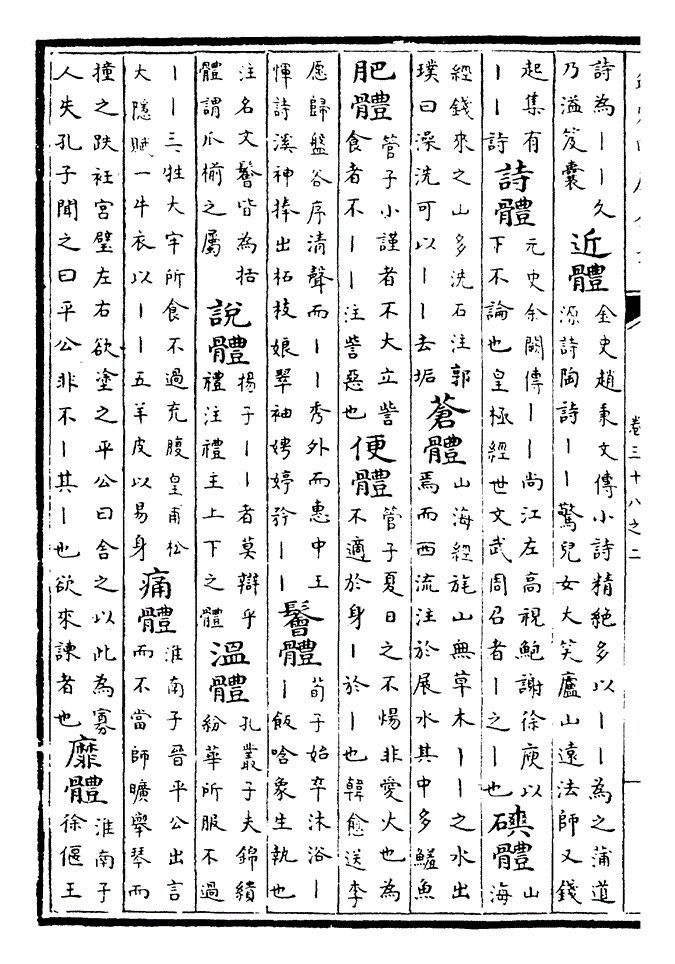 卷三十八之二
詩為丨丨久
乃溢笈囊
近體
金史趙秉文傳小詩精絶多以丨丨為之蒲道
源詩陶詩丨丨驚兒女大笑廬山遠法師又錢
起集有
丨丨詩
詩體
元史余闕傳丨丨尚江左高視鮑謝徐庾以
下不論也皇極經世文武周召者丨之丨也
磢體
山
海
經錢來之山多洗石注郭
璞曰澡洗可以丨丨去垢
蒼體
山海經旄山無草木丨丨之水出
焉而西流注於展水其中多鱃魚
肥體
管子小謹者不大立訾
食者不丨丨注訾惡也
便體
管子夏日之不煬非愛火也為
不適於身丨於丨也韓愈送李
愿歸盤谷序清聲而丨丨秀外而惠中王
惲詩溪神捧出柘枝娘翠袖娉婷矜丨丨
鬠體
荀子始卒沐浴丨
丨飯唅象生執也
注名文鬠皆為括
體謂爪揃之屬
說體
揚子丨丨者莫辯乎
禮注禮主上下之體
溫體
孔叢子夫錦繢
紛華所服不過
丨丨三牲大牢所食不過充腹皇甫松
大隱賦一牛衣以丨丨五羊皮以易身
痛體
淮南子晉平公出言
而不當師曠舉琴而
撞之跌衽宮壁左右欲塗之平公曰舍之以此為寡
人失孔子聞之曰平公非不丨其丨也欲來諫者也
靡體
淮南子
徐偃王